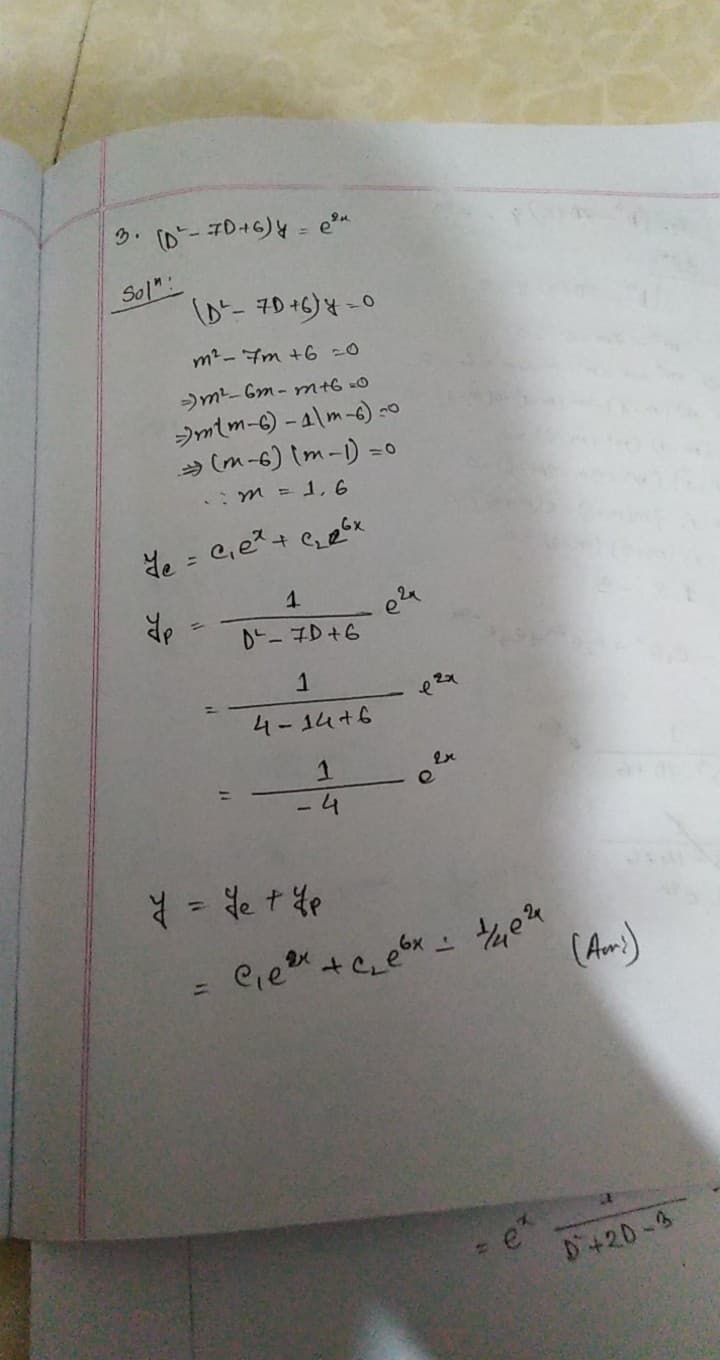 3. (D² - 7D+6)y = e²ˣ
Solⁿ:
(D² - 7D+6)y = 0
m² - 7m + 6 = 0
⇒ m² - 6m - m + 6 = 0
⇒ m(m-6) - 1(m-6) = 0
⇒ (m-6) (m-1) = 0
∴ m = 1, 6
y_c = c₁eˣ + c₂e⁶ˣ
y_p = 1/(D² - 7D + 6) e²ˣ
= 1/(4 - 14 + 6) e²ˣ
= 1/(-4) e²ˣ
y = y_c + y_p
= c₁e²ˣ + c₂e⁶ˣ - 1/4 e²ˣ (Ans:)
= eˣ 1/(D² + 2D - 3)